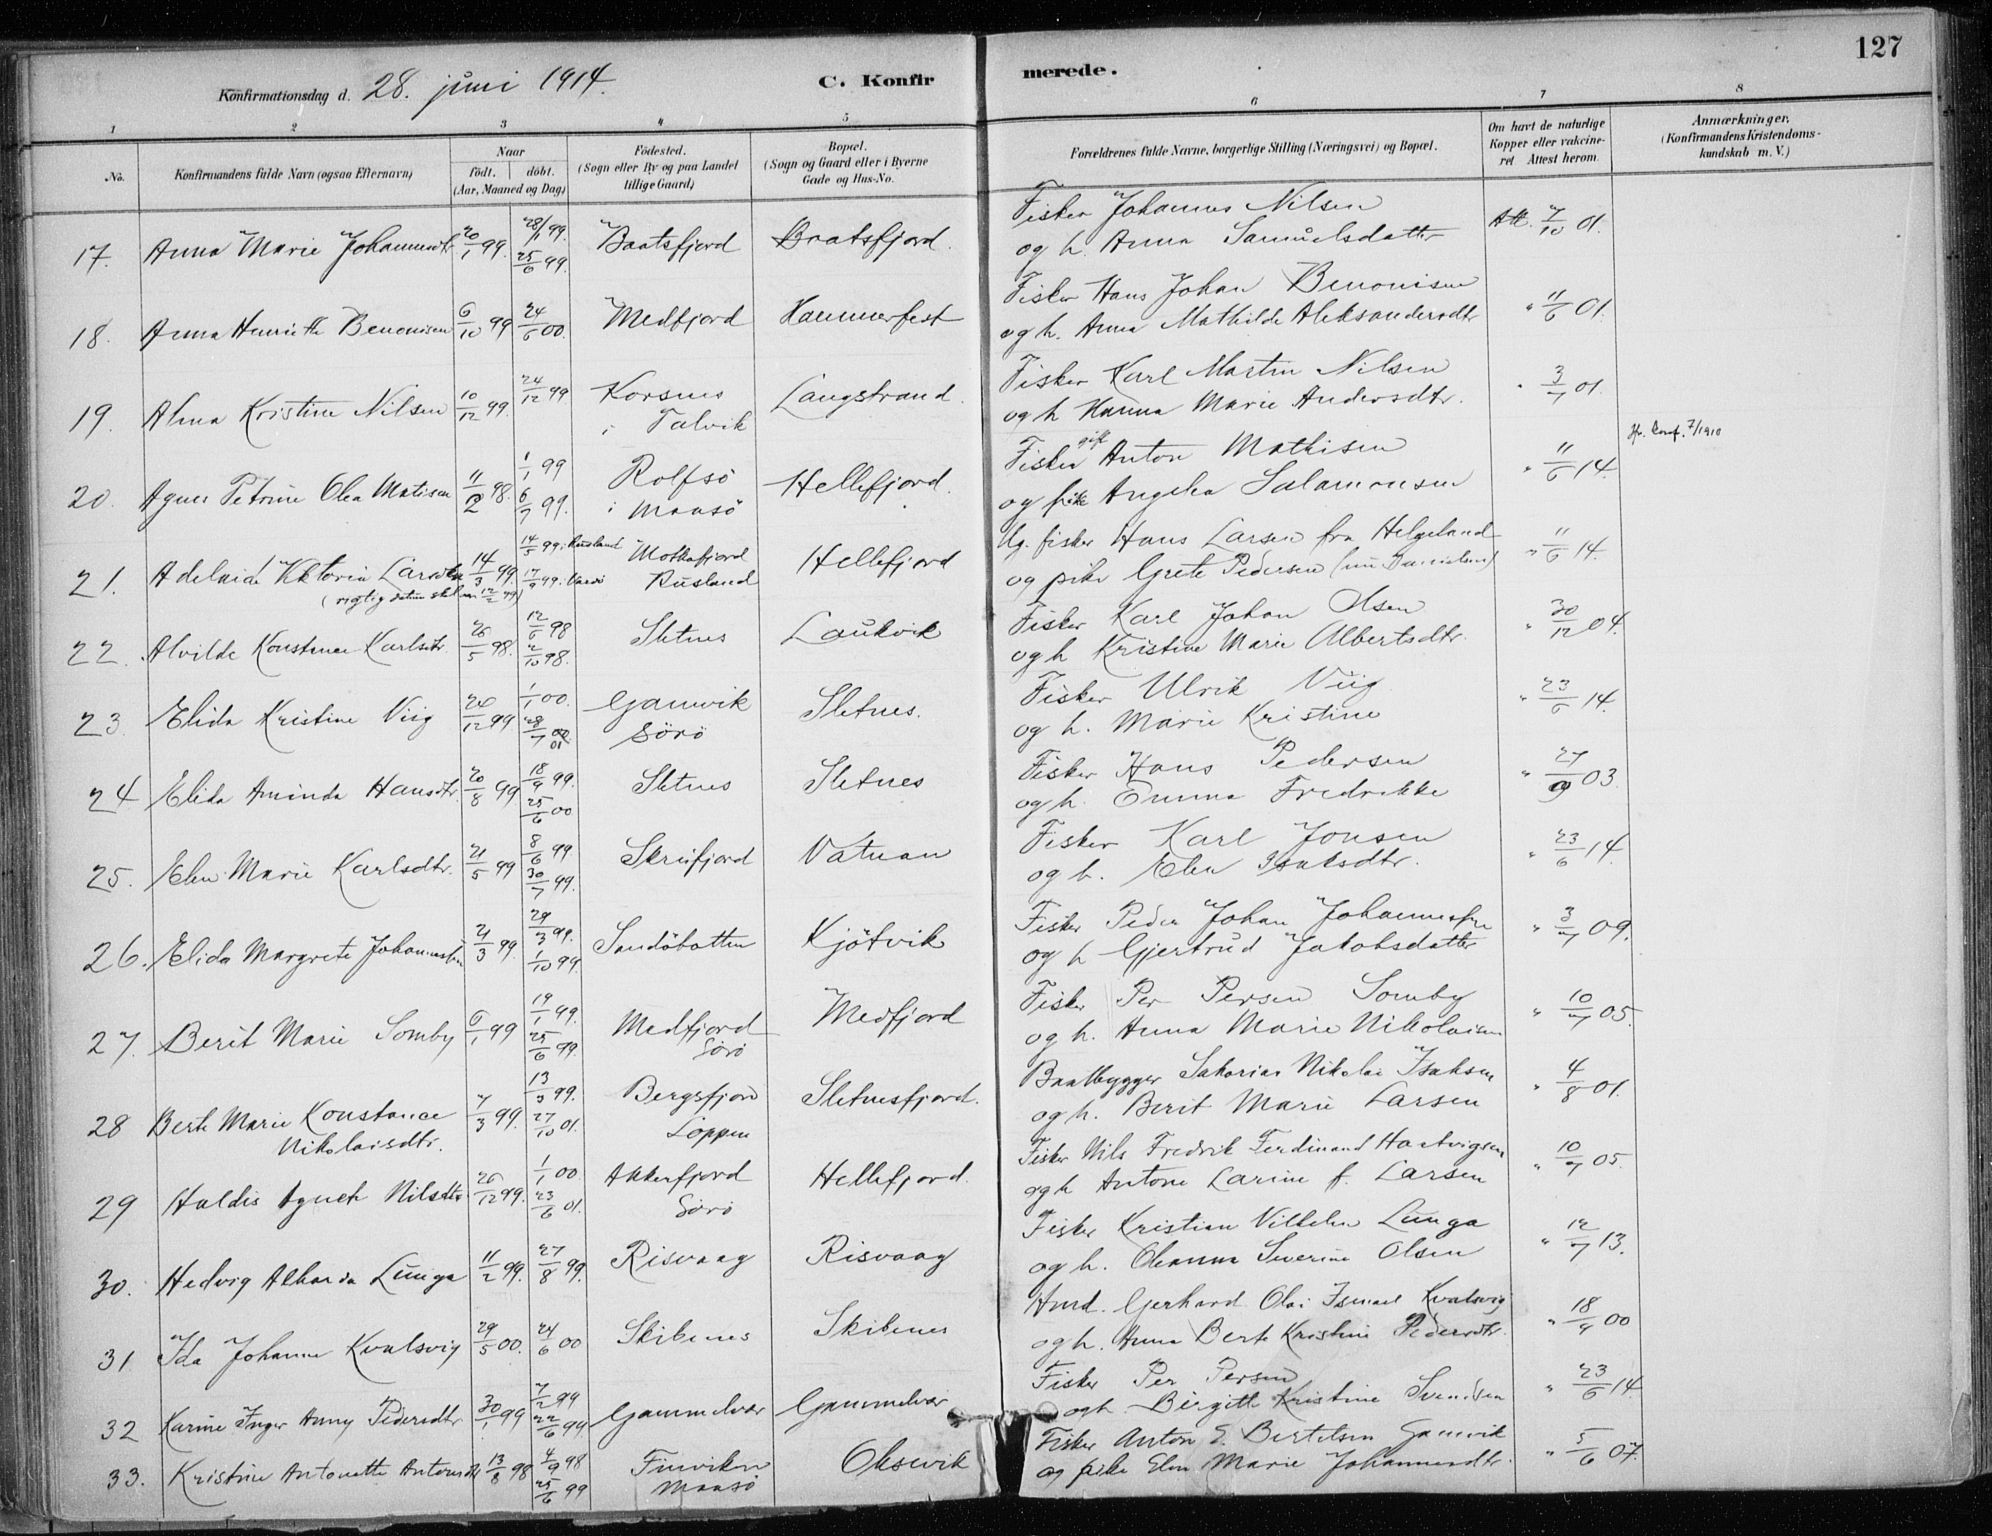 127
Konfirmationsdag d. 28. juni 1914.
C. Konfirmerede.
1 2 3 4 5 6 7 8
No.
Konfirmandens fulde Navn (ogsaa Efternavn)
Naar
födt. döbt.
(Aar, Maaned og Dag)
Födested.
(Sogn eller By og paa Landet
tillige Gaard)
Bopæl.
(Sogn og Gaard eller i Byerne
Gade og Hus-No.
Forældrenes fulde Navne, borgerlige Stilling (Næringsvei) og Bopæl.
Om havt de naturlige
Kopper eller vakcine-
ret Attest herom.
Anmærkninger.
(Konfirmandens Kristendoms-
kundskab m. V.)
17. Anna Marie Johannesdtr 20/1 99. 28/1 99. 25/6 99. Baatsfjord Baatsfjord. Fisker Johannes Nilsen
og h. Anna Samuelsdatter Att. 7/10 01.
18. Anna Henriette Benonisen 6/10 99 24/6 00. Medfjord Hammerfest Fisker Hans Johan Benonisen
og h. Anna Mathilde Aleksandersdtr " 11/6 01.
19. Alma Kristine Nilsen 10/12 99. 24/12 99 Korsnes
i Talvik Langstrand. Fisker Karl Martin Nilsen
og h Hanna Marie Andersdtr. " 3/7 01.
20. Agnes Petrine Olea Matisen 11/2 98. 1/1 99 6/7 99. Rolfsö
i Maasö Hellefjord. Fisker gift Anton Mathisen
og pike Angelia Salamonsen " 11/6 14. 7/1910
21. Adelaide Viktoria Larsdtr 14/3 99. 14/5 99 i Rusland 17/9 99 i Vardö Motkafjord
Rusland Hellefjord Ug. fisker Hans Larsen fra Helgeland
og pike Grete Pedersen (nu Danielsen) " 11/6 14.
(rigtig datum skal være 12/2 99)
22. Alvilde Konstance Karlsdtr. 26/5 98. 12/6 98 2/10 98. Sletnes Laukvik Fisker Karl Johan Olsen
og h Kristine Marie Albertsdtr. " 30/12 04.
23. Elida Kristine Viig 20/12 99 1/1 00. 28/7 00 01 Gamvik
Sörö Sletnes. Fisker Ulrik Viig
og h. Marie Kristine " 23/6 14.
24 Elida Aminda Hansdtr 20/8 99 18/9 99. 25/6 00 Sletnes Sletnes Fisker Hans Pedersen
og h. Emma Fredrikke " 27/9 03.
25. Elen Marie Karlsdtr. 21/5 99 8/6 99 30/7 99. Skreifjord Vatnan Fisker Karl Jonsen
og h. Elen Isaksdtr. " 23/6 14.
26. Elida Margrete Johannessen 21/3 99. 29/3 99. 1/10 99. Sandöbotten Kjötvik Fisker Peder Johan Johannessen
og h Gjertrud Jakobsdatter " 3/7 09.
27. Berit Marie Somby 6/1 99 19/1 99. 25/6 99. Medfjord
Sörö Medfjord Fisker Per Persen Somby
og h. Anna Marie Nikolaisen " 10/7 05.
28 Berte Marie Konstance
Nikolaisdtr. 7/3 99. 13/3 99. 27/10 01. Bergsfjord
Loppen Sletnesfjord. Baatbygger Sakarias Nikolai Isaksen
og h. Berit Marie Larsen " 4/8 01.
29 Haldis Agnete Nilsdtr 26/12 99. 1/1 00 23/6 01. Akkerfjord
Sörö Hellefjord. Fisker Nils Fredrik Ferdinand Hartvigsen
og h Antone Larine f. Larsen " 10/7 05.
30. Hedvig Alharda Lunga 11/2 99. 27/8 99. Risvaag Risvaag Fisker Kristian Vilhelm Lunga
og h. Oleanna Severine Olsen " 12/7 13.
31 Ida Johanne Kvalsvig 29/5 00. 24/6 00 Skibnes Skibnes Hmd. Gerhard Olai Ismael Kvalsvig
og h. Anna Berte Kristine Pedersdtr. " 18/9 00
32 Karine Inger Anny Pedersdtr 30/1 99 7/2 99 22/6 99 Gammelvær Gammelvær Fisker Per Persen
og h. Birgitte Kristine Svendsen " 23/6 14.
33. Kristine Antonette Antonsdtr 13/8 98 4/9 98 25/6 99 Finviken
Maasö Oksevik Fisker Anton E. Bertelsen Gamvik
og pike Elen Marie Johannesdtr. " 5/6 07.